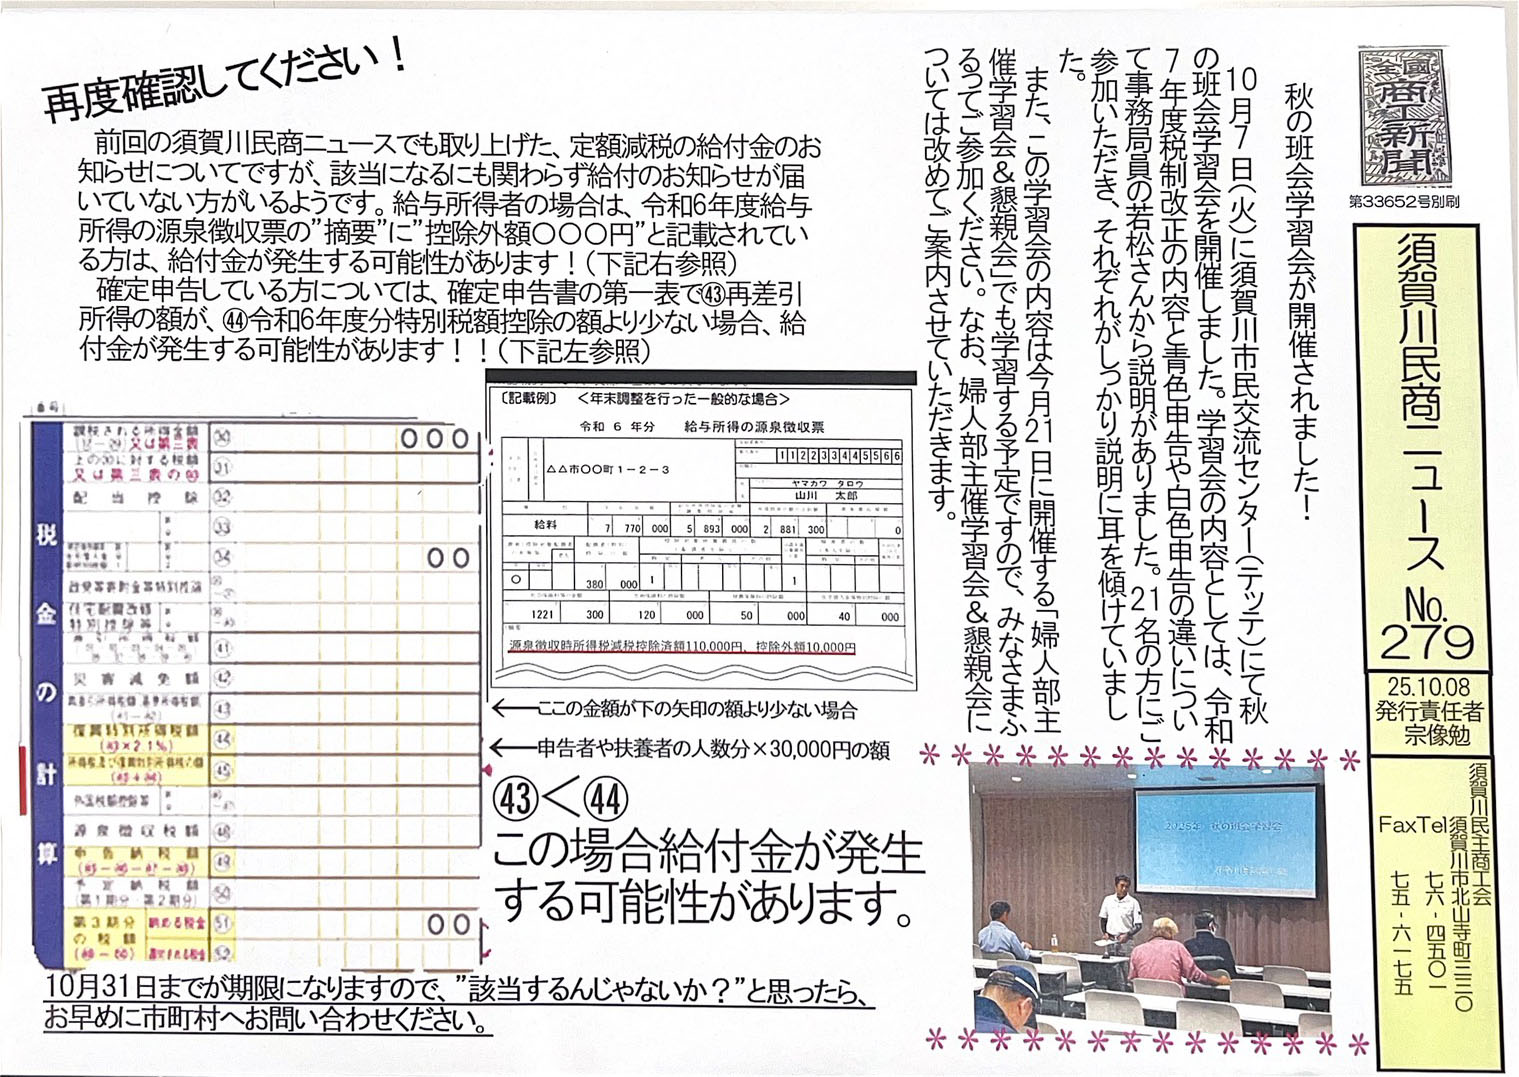 全國
商工新聞
第33652号別刷
須賀川民商ニュース No.
279
25.10.08
発行責任者
宗像勉
須賀川民主商工会
須賀川市北山寺町三三〇
Tel 七六-四五〇一
Fax 七五-六一七五
秋の班会学習会が開催されました！
10月7日(火)に須賀川市民交流センター(テッテ)にて秋
の班会学習会を開催しました。学習会の内容としては、令和
7年度税制改正の内容と青色申告や白色申告の違いについ
て事務局員の若松さんから説明がありました。21名の方にご
参加いただき、それぞれがしっかり説明に耳を傾けていまし
た。
また、この学習会の内容は今月21日に開催する「婦人部主
催学習会＆懇親会」でも学習する予定ですので、みなさまふ
るってご参加ください。なお、婦人部主催学習会＆懇親会に
ついては改めてご案内させていただきます。
2025年 秋の班会学習会
再度確認してください！
前回の須賀川民商ニュースでも取り上げた、定額減税の給付金のお
知らせについてですが、該当になるにも関わらず給付のお知らせが届
いていない方がいるようです。給与所得者の場合は、令和6年度給与
所得の源泉徴収票の”摘要”に”控除外額〇〇〇円”と記載されてい
る方は、給付金が発生する可能性があります！(下記右参照)
確定申告している方については、確定申告書の第一表で㊸再差引
所得の額が、㊹令和6年度分特別税額控除の額より少ない場合、給
付金が発生する可能性があります！！(下記左参照)
番号
税金の計算
課税される所得金額
又は第三表 ㉚ 000
上の㉚に対する税額
又は第三表の ㉛
配当控除 ㉜
㉝
㉞ 00
政党等寄附金等特別控除
住宅耐震改修
特別控除等
㊶
災害減免額 ㊷
㊸
復興特別所得税額
(㊸×2.1%) ㊹
㊺
外国税額控除等
源泉徴収税額 ㊽
申告納税額 ㊾
予定納税額
(第1期分・第2期分) ㊿
第3期分
の税額
納める税金 51 00
還付される税金 52
〔記載例〕 ＜年末調整を行った一般的な場合＞
令和 6 年分 給与所得の源泉徴収票
△△市〇〇町1－2－3
1 1 2 2 3 3 4 4 5 5 6 6
ヤマカワ タロウ
山川 太郎
給料 7 770 000 5 893 000 2 881 300 0
〇 380 000 1 1
1221 300 120 000 50 000 40 000
源泉徴収時所得税減税控除済額110,000円、控除外額10,000円
←ここの金額が下の矢印の額より少ない場合
←申告者や扶養者の人数分×30,000円の額
㊸＜㊹
この場合給付金が発生
する可能性があります。
10月31日までが期限になりますので、”該当するんじゃないか？”と思ったら、
お早めに市町村へお問い合わせください。